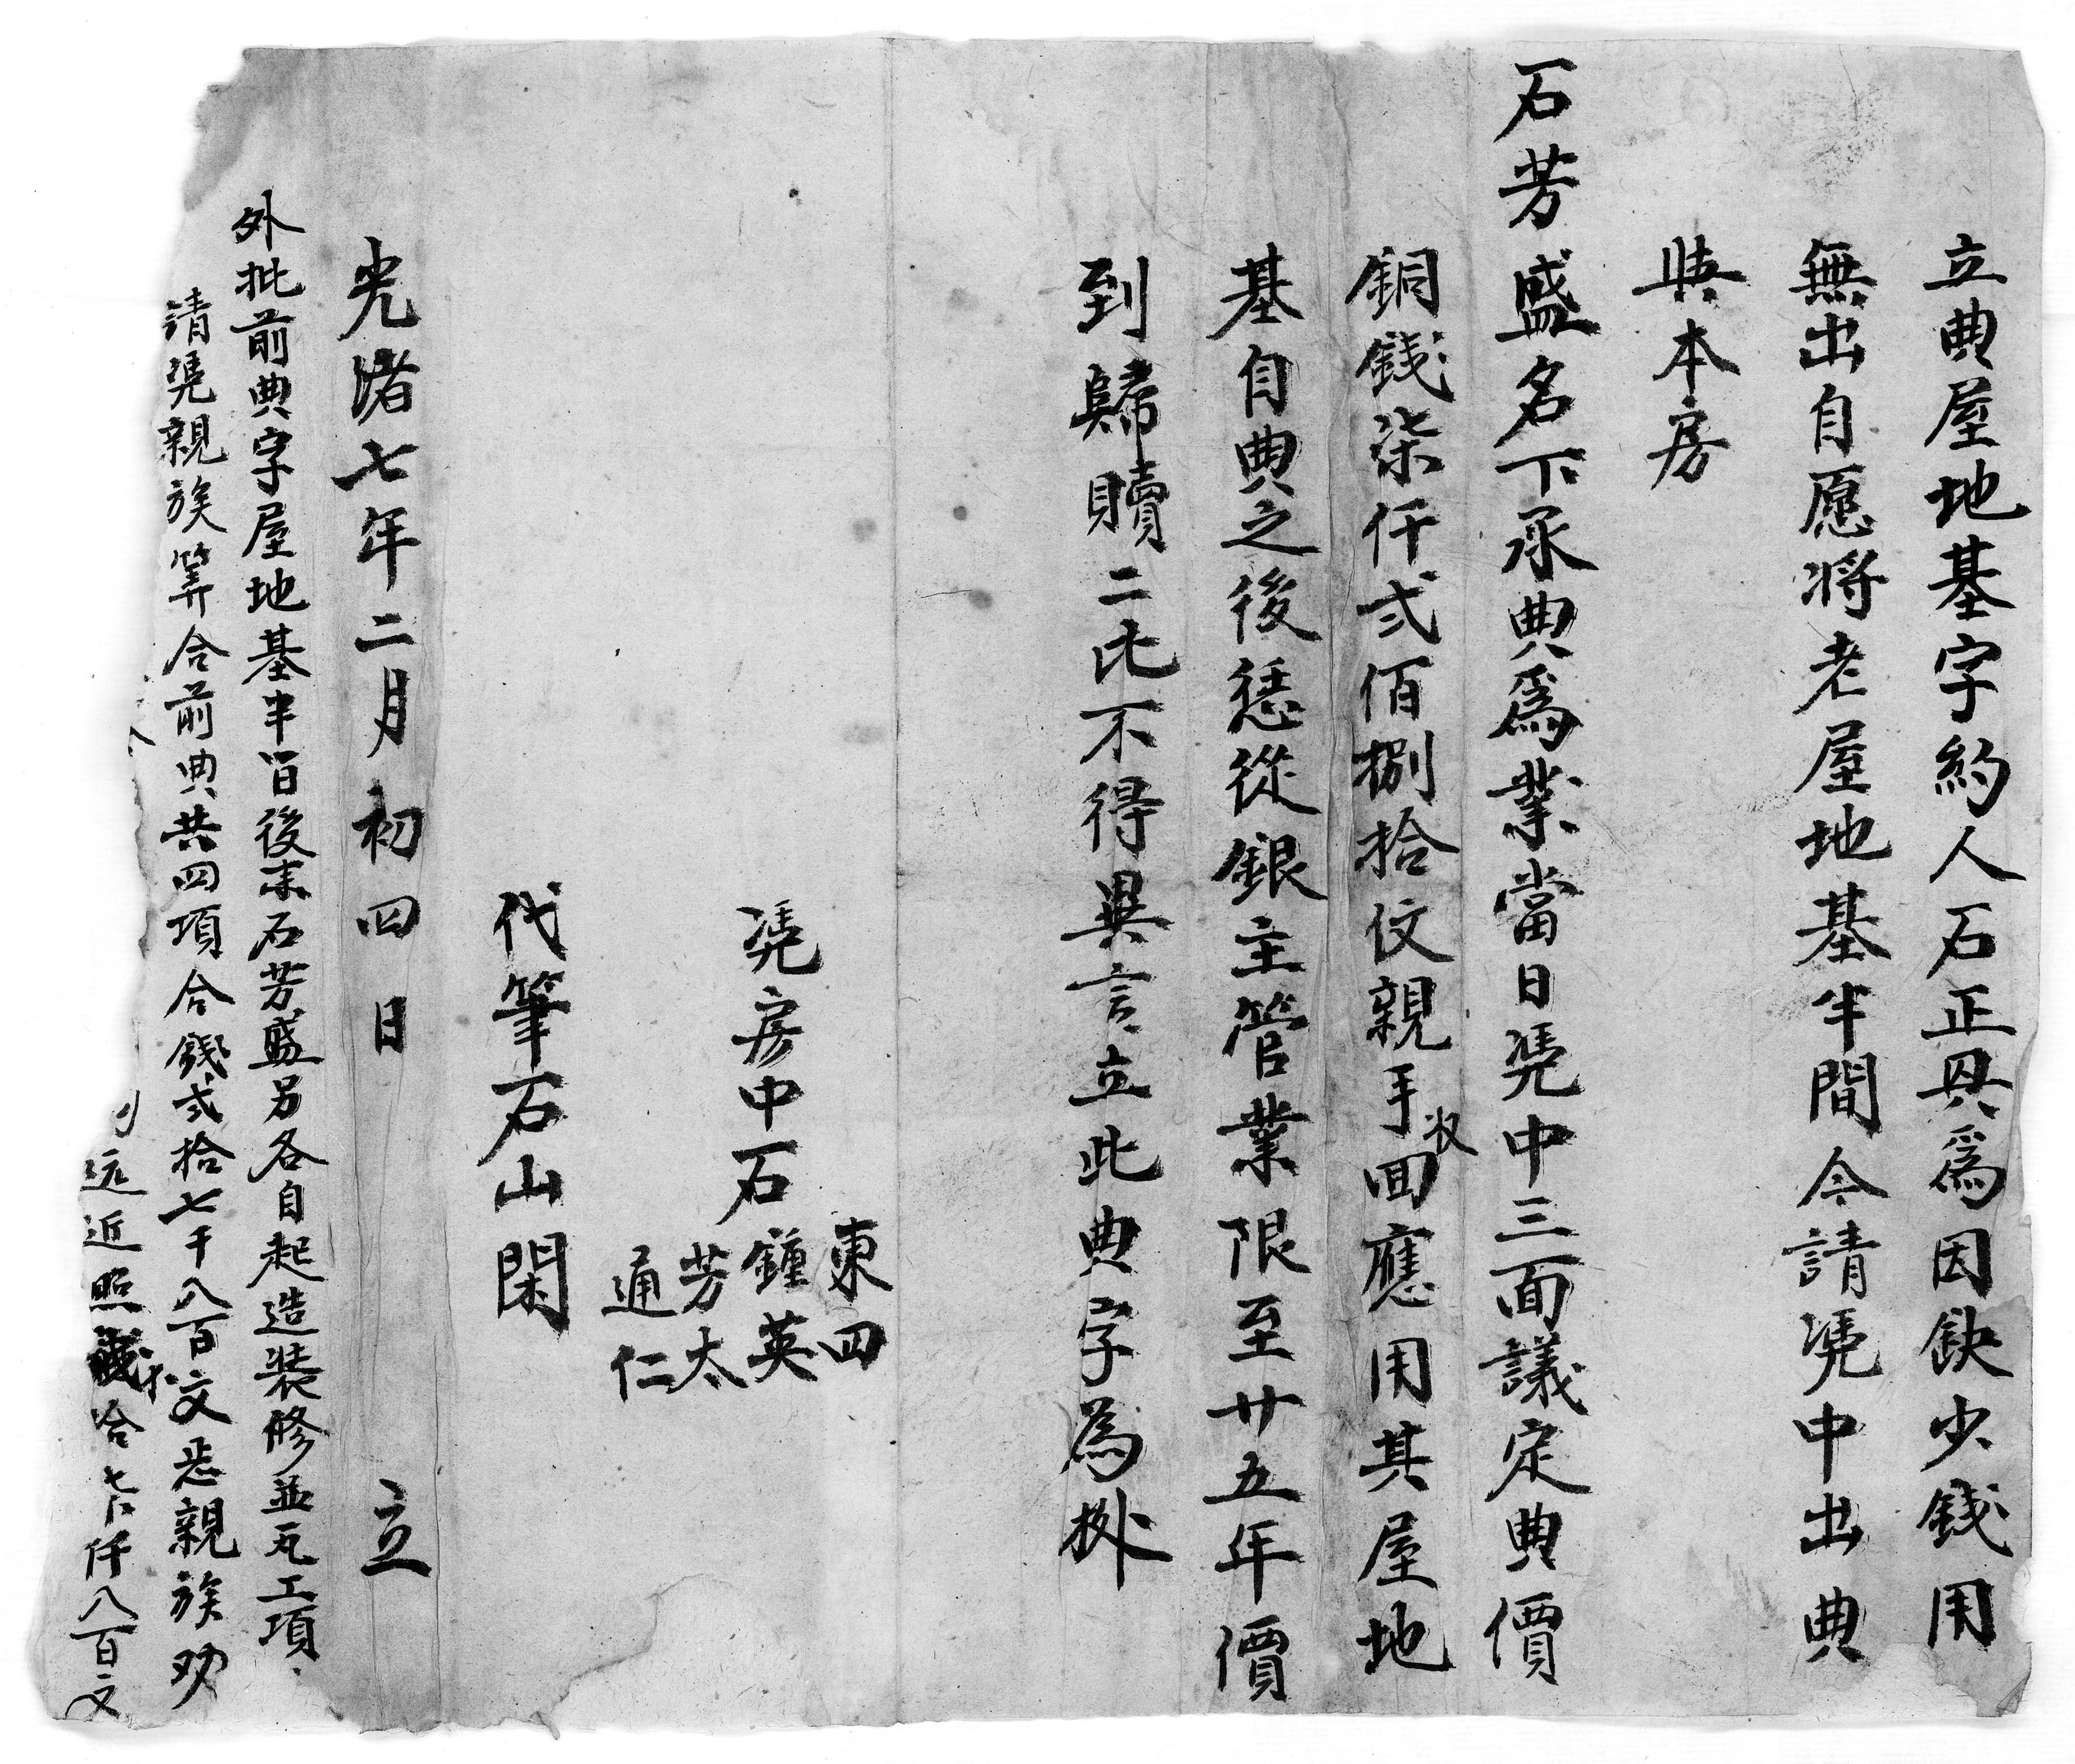 立典屋地基字約人石正具為因缺少錢用
無出自愿將老屋地基半間今請凴中出典
與本房
石芳盛名下承典為業當日凴中三面議定典價
銅錢柒仟弍佰捌拾伩親手收回應用其屋地
基自典之後恁從銀主管業限至廿五年價
到歸贖二比不得異言立此典字為㨿
凴房中石
東四
鍾英
芳太
通仁
代筆石山閑
光渚七年二月初四日 立
外批前典字屋地基半間後來石芳盛另各自起造裝修並瓦工項
請凴親族筭合前典共四項合錢弍拾七千八百文恁親族劝
远近照 合 仟八百文